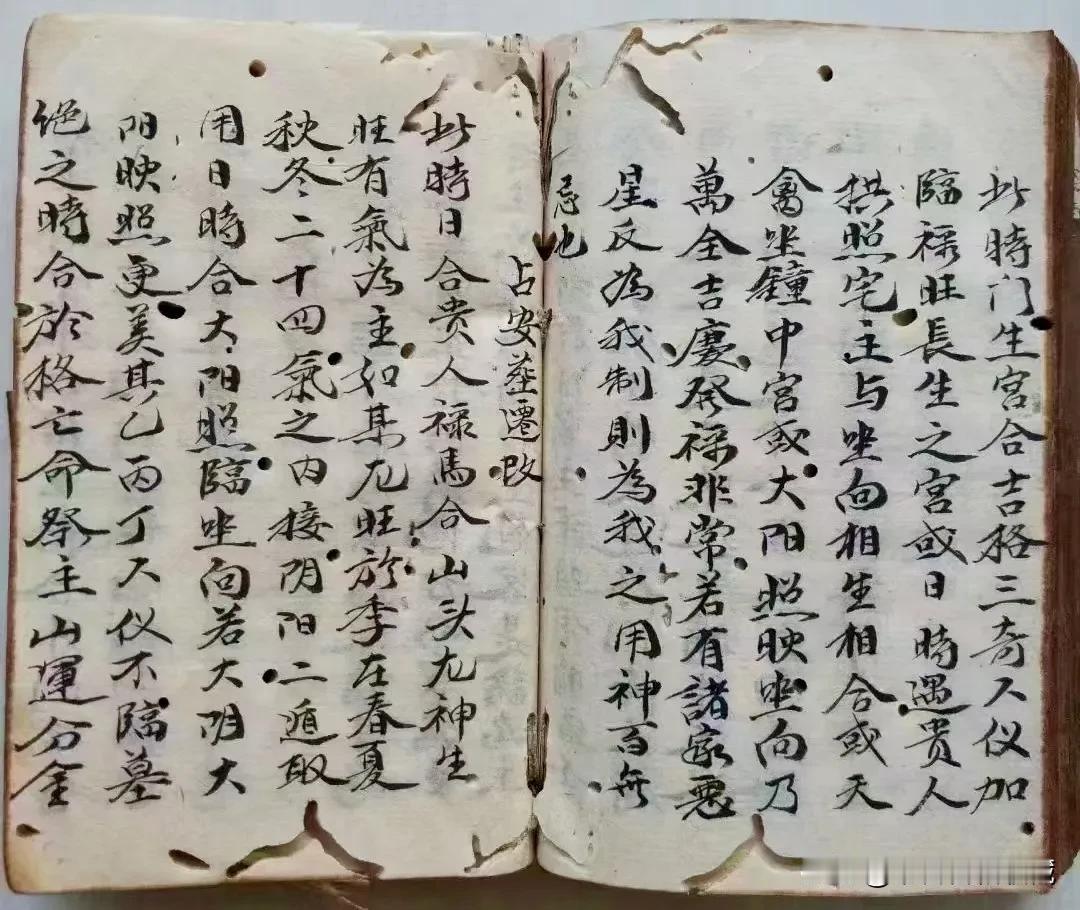 此時门生宫合吉格三奇人仪加
臨禄旺長生之宫或日時遇贵人
拱照宅主与坐向相生相合或天
禽坐鐘中宫或大阳照映坐向乃
萬全吉慶発禄非常若有諸家惡
星反為我制則為我之用神百無
忌也
占安葬遷改
此時日合贵人禄馬合山头尤神生
旺有氣為主如某尤旺於季在春夏
秋冬二十四氣之内接阴阳二遁取
用日時合大阳照臨坐向若大阴大
阳映照更美其乙丙丁人仪不臨墓
绝之時合於格亡命祭主山運分金